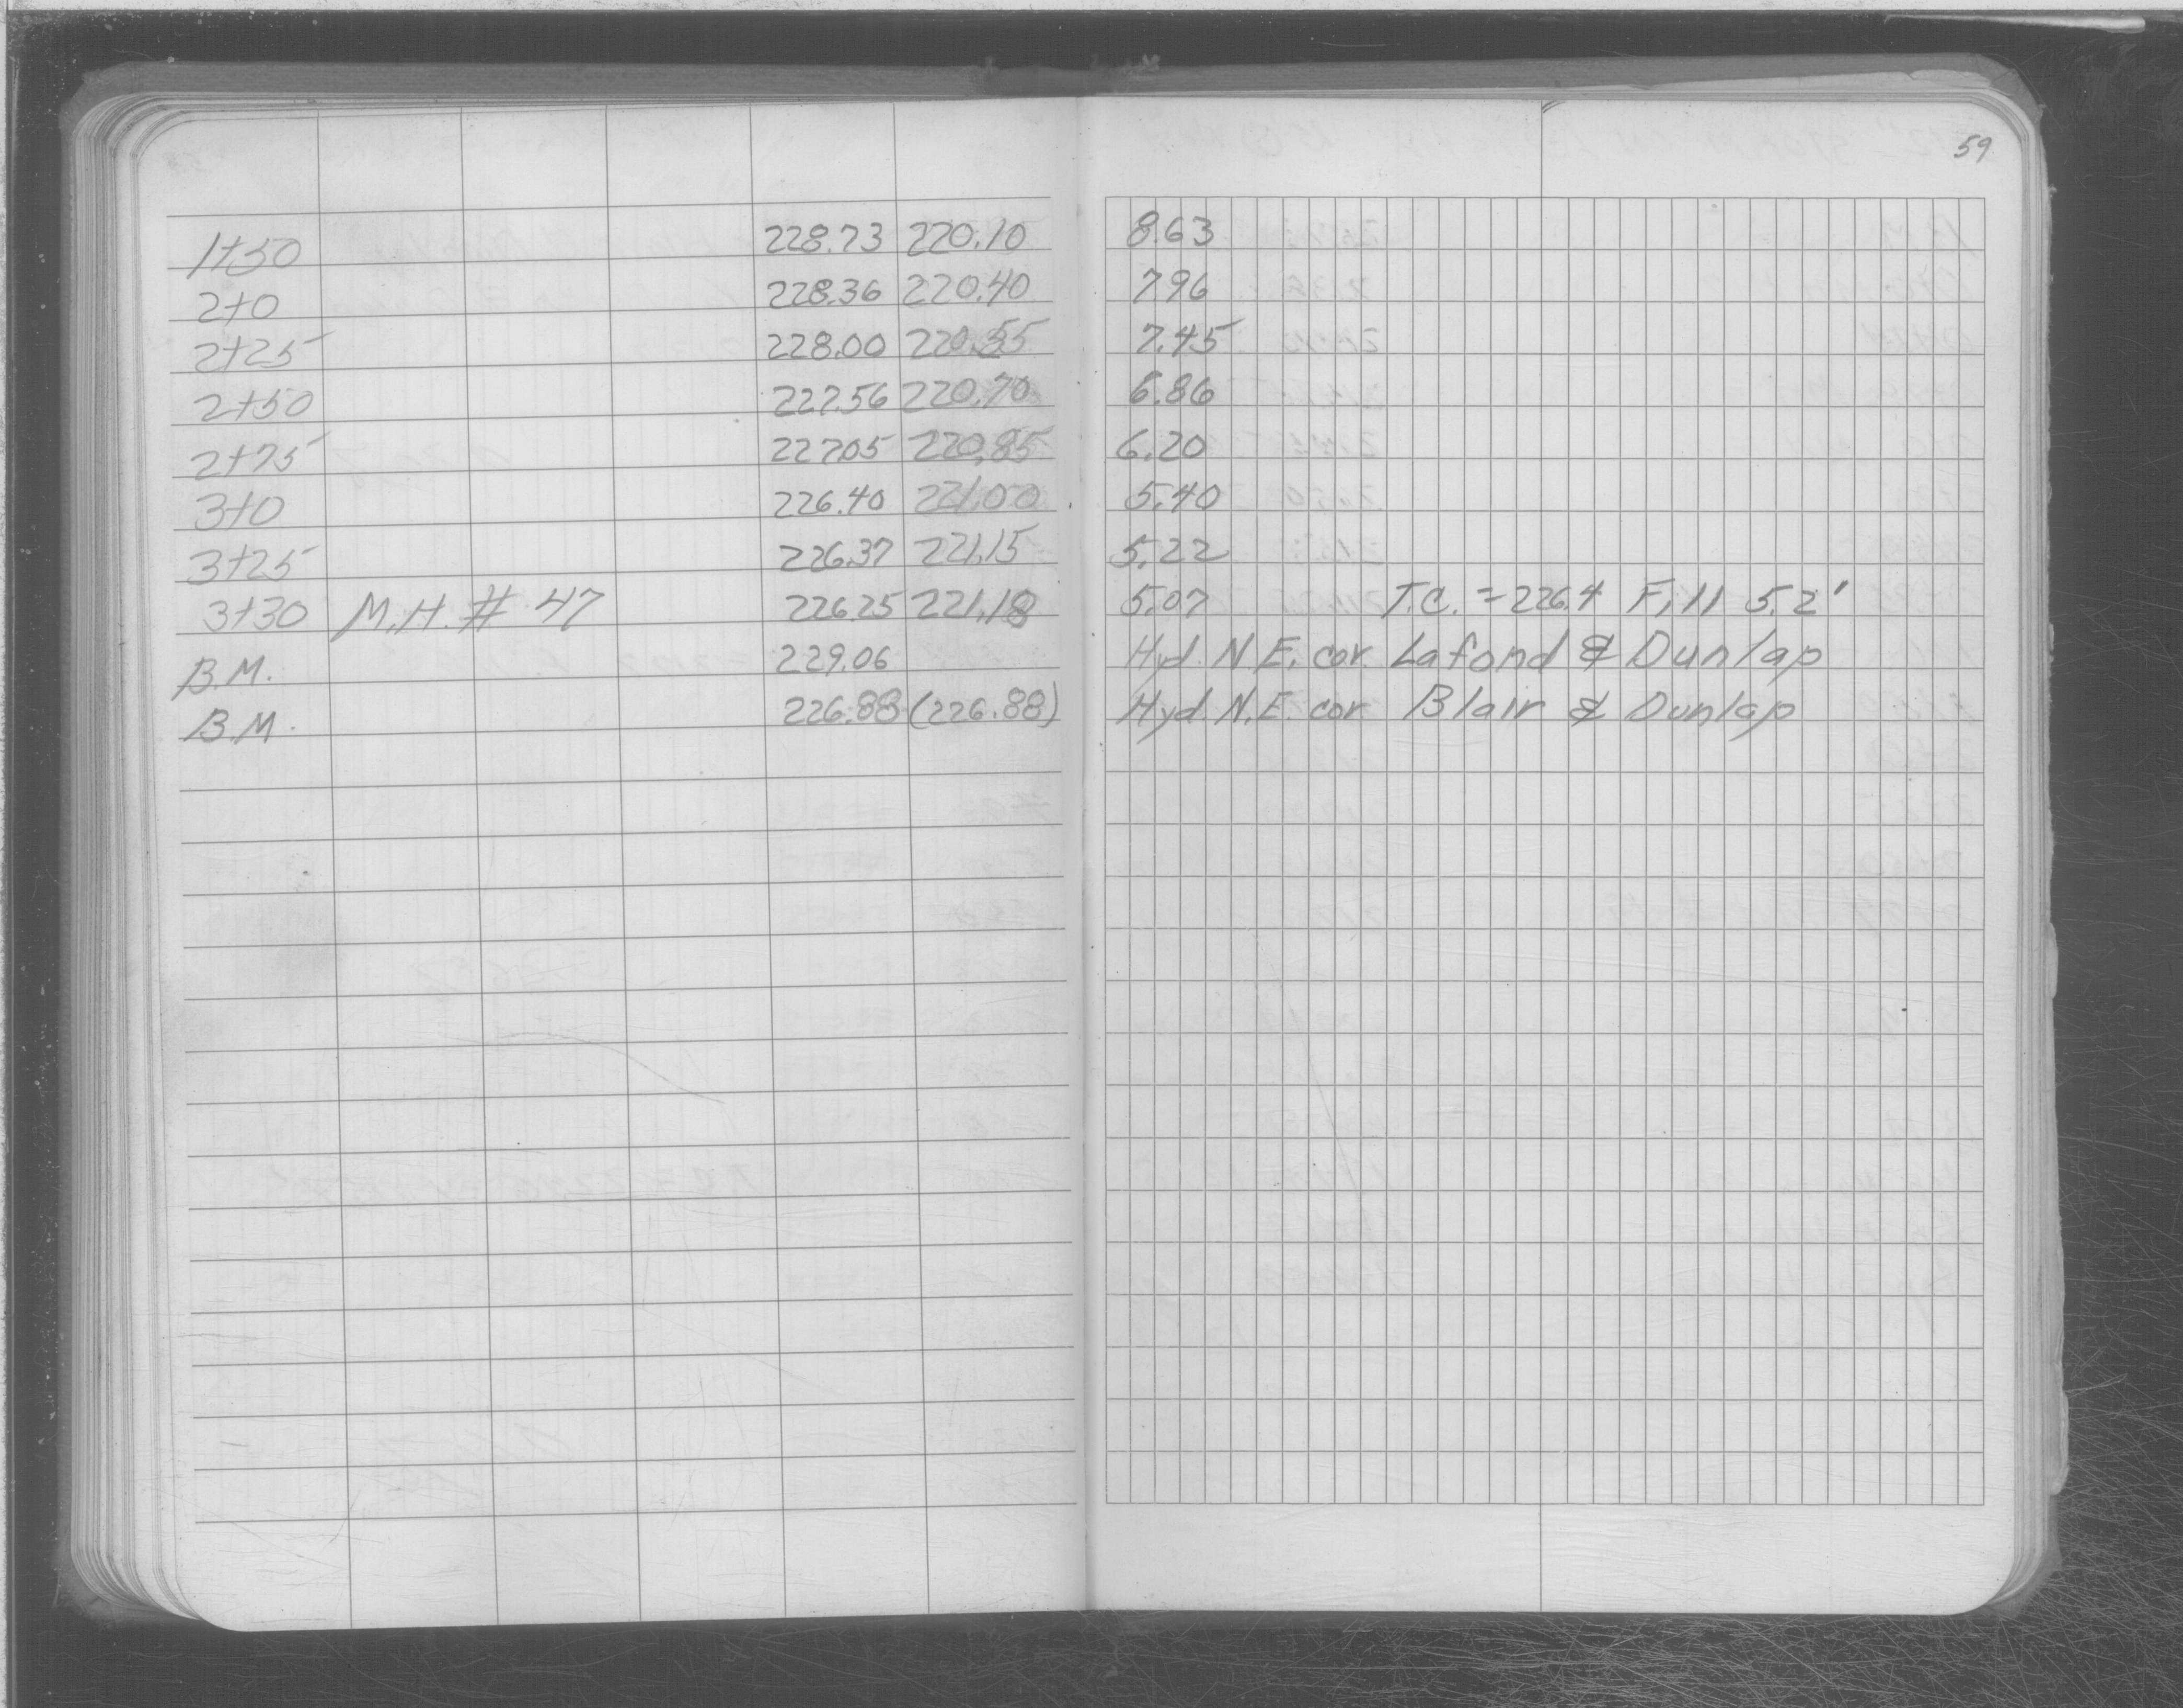 59
1+50 228.73 220.10 8.63
2+0 228.36 220.40 7.96
2+25 228.00 220.55 7.45
2+50 227.56 220.70 6.86
2+75 227.05 220.85 6.20
3+0 226.40 221.00 5.40
3+25 226.37 221.15 5.22
3+30 M.H. # 47 226.25 221.18 5.07 T.C. = 226.4 Fill 5.2'
B.M. 229.06 Hyd. N.E. cor Lafond & Dunlap
B.M. 226.88 (226.88) Hyd. N.E. cor Blair & Dunlap